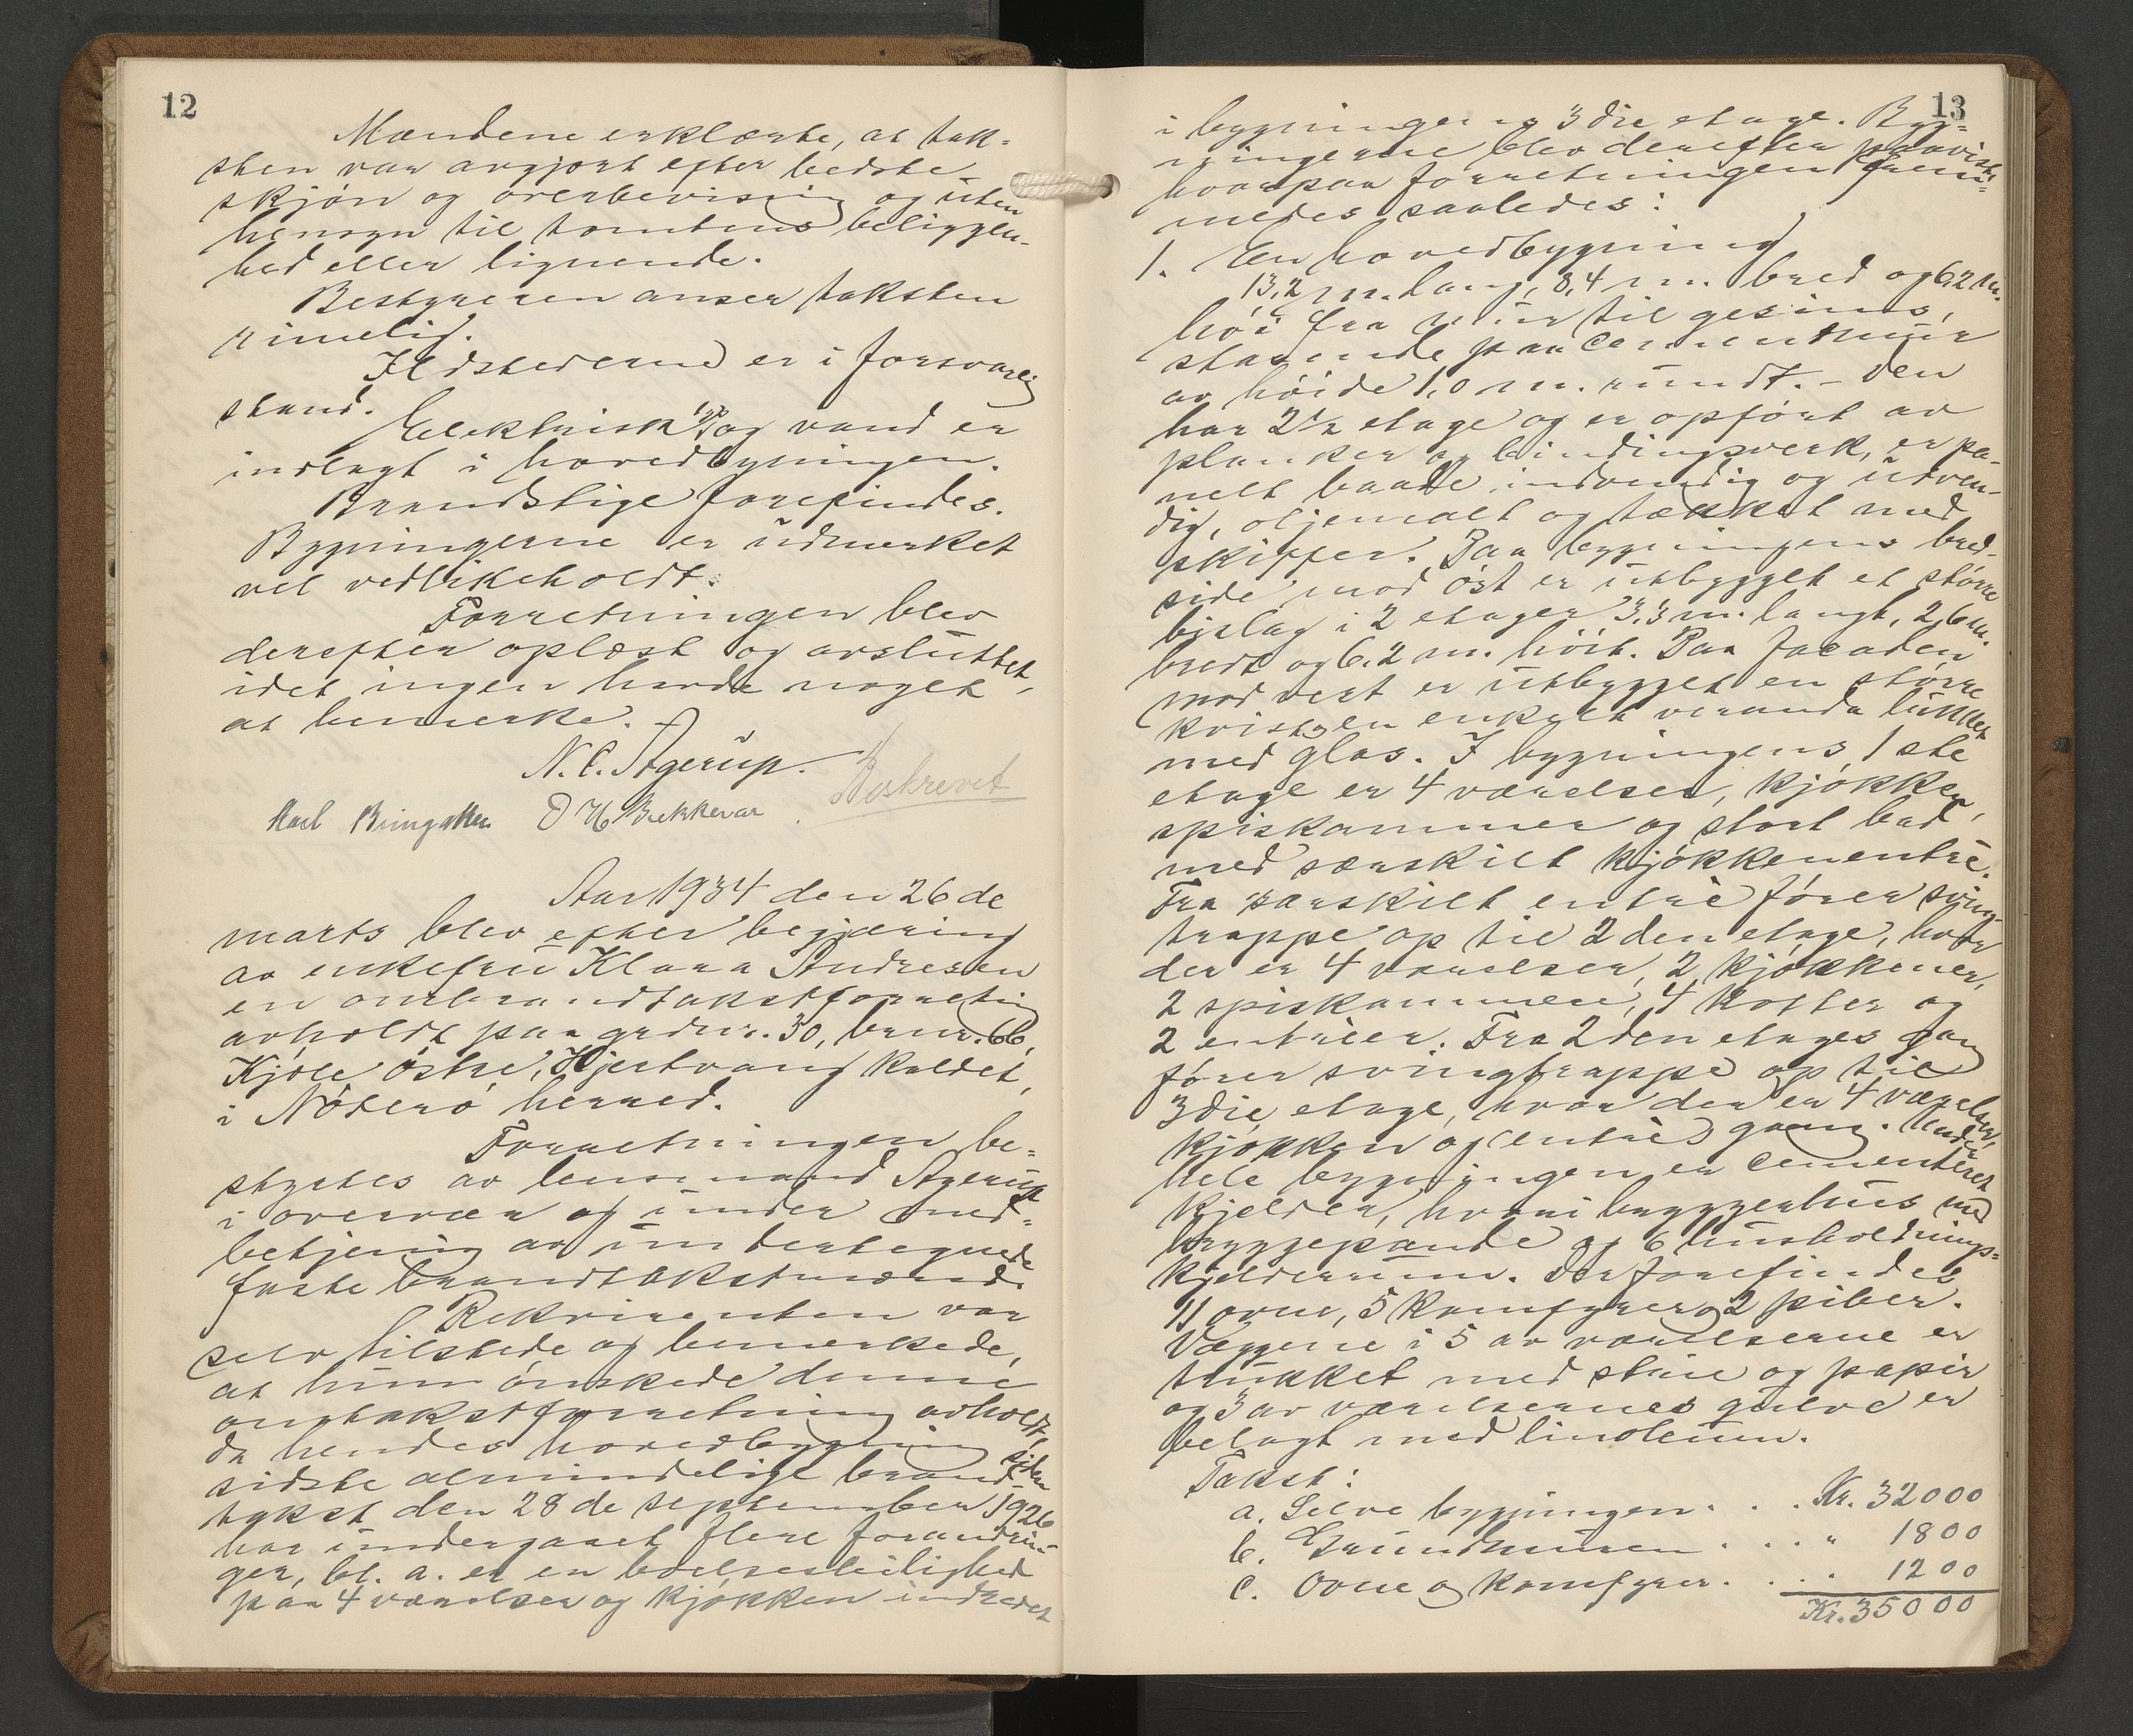 12
Mændene erklærte, at tak-
sten var avgjort efter bedste
skjøn og overbevisning og uten
hensyn til tomtens beliggen-
hed eller lignende.
Bestyreren anser taksten
rimelig.
Ildstederne er i forsvarlig
stand.
Elektrisk lys og vand er
indlagt i hovedbygningen.
Brandstige forefindes.
Bygningerne er udmerket
vel vedlikeholdt.
Forretningen blev
derefter oplæst og avsluttet,
idet ingen havde noget
at bemerke.
N.C. Agerup.
Karl Bringaker O H Bekkevar
Beskrevet
Aar 1934 den 26de
marts blev efter begjæring
av enkefru Klara Andresen
en ombrandtakstforretning
avholdt paa grdnr. 30, brnr. 66,
Kjøle østre, Hjertvang kaldet,
i Nøterø herred.
Forretningen be-
styrtes av lensmand Agerup
i overvær og under med-
betjening av undertegnede
faste brandtakstmænd.
Rekvirenten var
selv tilstede og bemerkede,
at hun ønskede denne
omtakstforretning avholdt,
da hendes hovedbygning siden
sidste almindelige brand-
takst den 28de september 1926
har undergaaet flere forandrin-
ger, bl. a. er en bolesleilighed
paa 4 værelser og kjøkken indredet
13
i bygningens 3die etage. Byg-
ningerne blev derefter paavist,
hvorpaa forretningen frem-
medes saaledes:
1. En hovedbygning
13,2 m. lang, 8,4 m. bred og 6,2 m.
høi fra mur til gesims,
staaende paa cementmur
av høide 1,0 m. rundt. - Den
har 2½ etage og er opført av
planker og bindingsverk, er pa-
nelt baade indvendig og utven-
dig, oljemalt og tækket med
skiffer. Paa bygningens bred-
side mod øst er utbygget et større
bislag i 2 etager 3,3 m. langt, 2,6 m.
bredt og 6,2 m. høit. Paa facaden
mod vest er utbygget en større
kvist og en enkelt veranda lukket
med glas. I bygningens 1ste
etage er 4 værelser, kjøkken,
spiskammer og stort bad
med særskilt kjøkkenentré.
Fra særskilt entré fører sving-
trappe op til 2den etage, hvor
der er 4 værelser, 2 kjøkkener,
2 spiskammere, 4 kotter og
2 entréer. Fra 2den etages gang
fører svingtrappe op til
3die etage, hvor der er 4 værelser,
kjøkken og entré gang. Under
hele bygningen er cementeret
kjelder, hvori bryggerhus med
bryggepande og 6 husholdnings-
kjelderrum. Der forefindes
11 ovne, 5 komfyrer og 2 piber.
Væggene i 5 av værelserne er
trukket med strie og papir
og 3 av værelsernes gulve er
belagt med linoleum.
Takst:
a. Selve bygningen . . . Kr. 32000
b. Grundmuren . . . " 1800
c. Ovne og komfyrer. . . . 1200
Kr. 35000